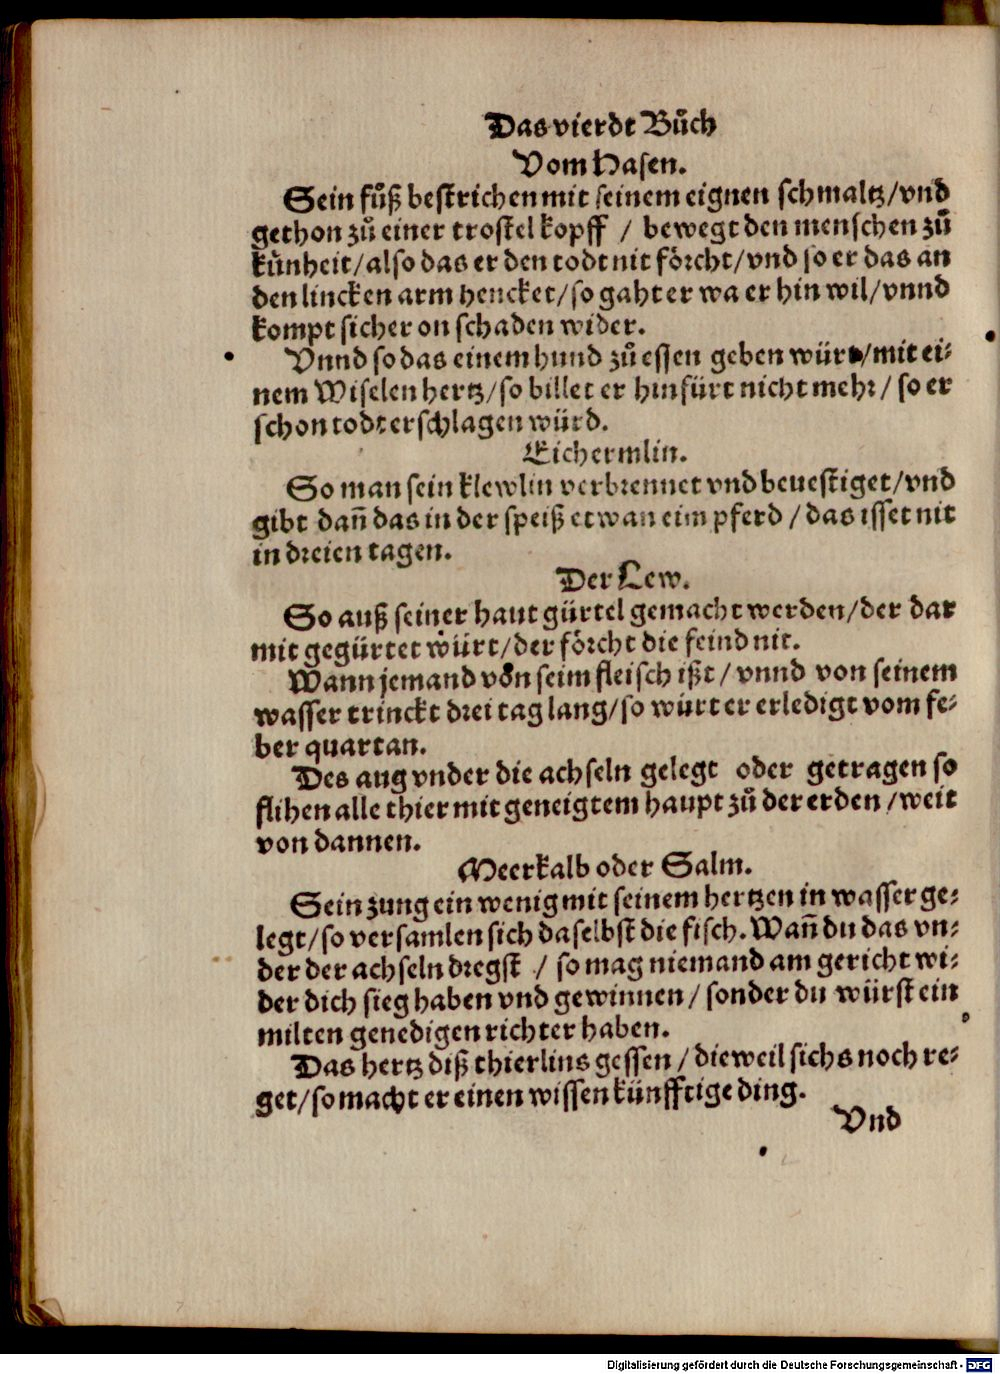 Das vierdt Bůch
Vom Hasen.
Sein fůß bestrichen mit seinem eignen schmaltz/vnd
gethon zů einer trostel kopff / bewegt den menschen zů
künheit/also das er den todt nit förcht/vnd so er das an
den lincken arm hencket/so gaht er wa er hin wil/vnnd
kompt sicher on schaden wider.
Vnnd so das einem hund zů essen geben würt/mit ei⸗
nem Wiselen hertz/so billet er hinfürt nicht mehr/ so er
schon todt erschlagen würd.
Eichermlin.
So man sein klewlin verbrennet vnd beuestiget/vnd
gibt dañ das in der speiß etwan eim pferd / das isset nit
in dreien tagen.
Der Lew.
So auß seiner haut gürtel gemacht werden/der dar
mit gegürtet würt/der förcht die feind nit.
Wann jemand von seim fleisch ißt / vnnd von seinem
wasser trinckt drei tag lang/so würt er erledigt vom fe⸗
ber quartan.
Des aug vnder die achseln gelegt oder getragen so
flihen alle thier mit geneigtem haupt zů der erden /weit
von dannen.
Meerkalb oder Salm.
Sein zung ein wenig mit seinem hertzen in wasser ge⸗
legt/so versamlen sich daselbst die fisch. Wañ du das vn⸗
der der achseln dregst / so mag niemand am gericht wi⸗
der dich sieg haben vnd gewinnen / sonder du würst ein
milten genedigen richter haben.
Das hertz diß thierlins gessen / dieweil sichs noch re⸗
get/so macht er einen wissen künfftige ding.
Vnd
Digitalisierung gefördert durch die Deutsche Forschungsgemeinschaft - DFG